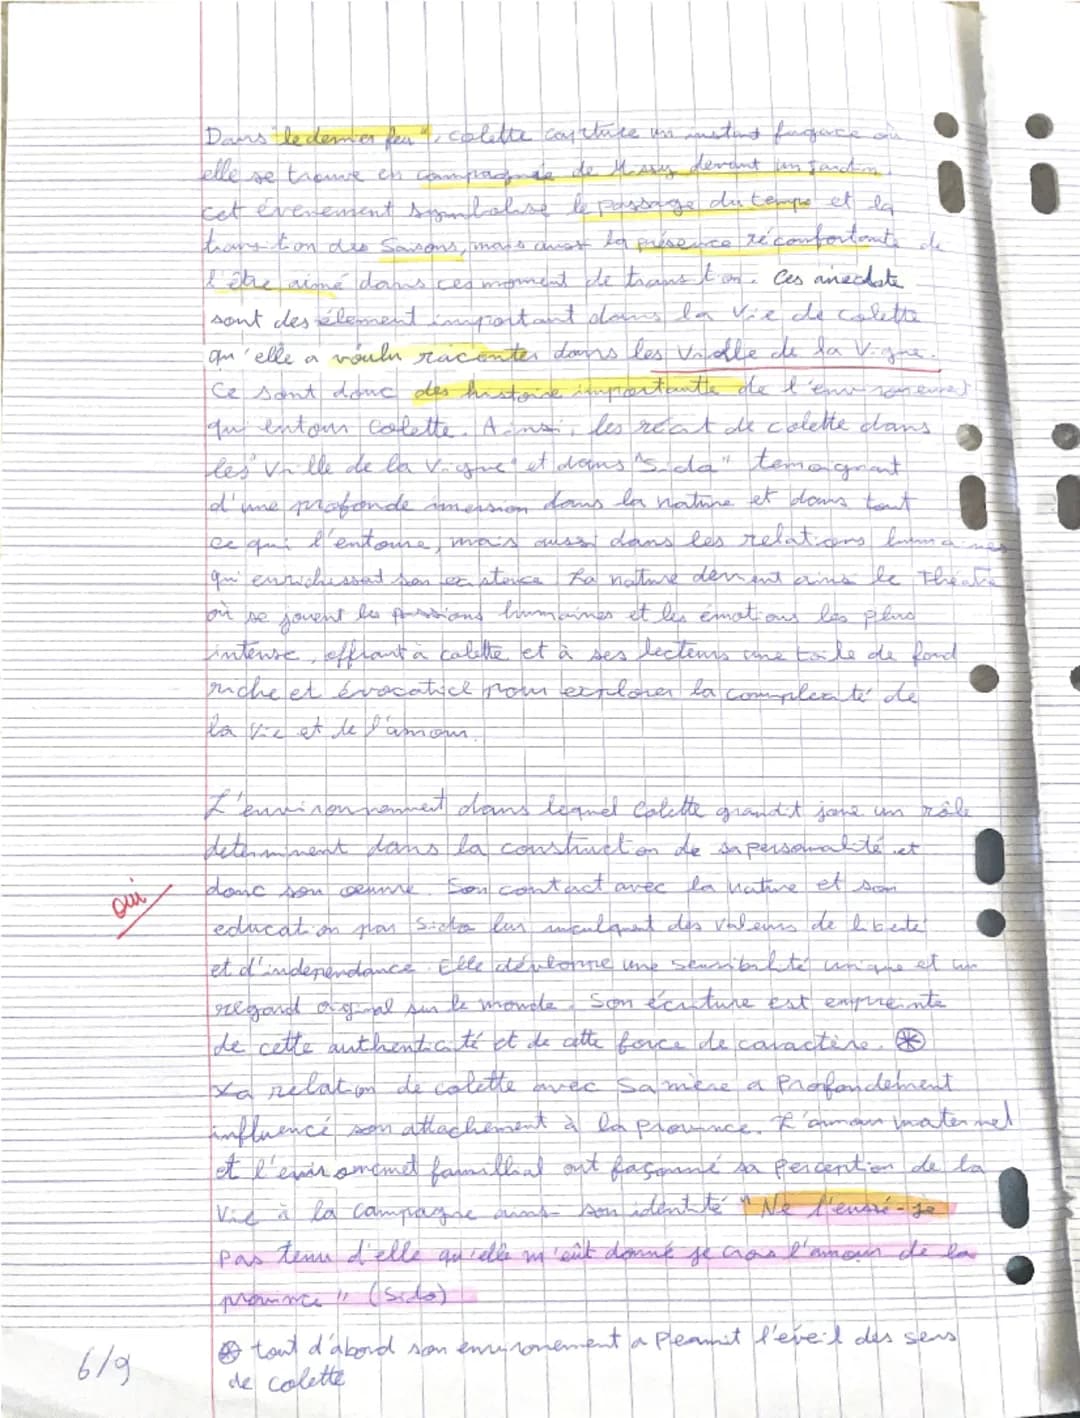 Dans "le dernier feu", colette capture un instant fugace où
elle se trouve en compagnie de Missy devant un jardin.
cet évenement symbolise le passage du temps et la
transition des Saisons, mais aussi la présence réconfortante de
l'être aimé dans ces moment de transition. Ces anecdote
sont des élement important dans la Vie de colette
qu'elle a voulu racenter dans les Vrille de la Vigne.
Ce sont donc des histoire importante de l'environement
qui entour Colette. Ainsi, les récit de colette dans
les "Vrille de la Vigne" et dans "Sido" temoignant
d'une profonde imersion dans la nature et dans tout
ce qui l'entoure, mais aussi dans les relations humaines
qui enrichessat son existence. La nature devient ainsi le Théatre
où se jouent les passions humaines et les émotions les plus
intense, offrant à colette et à ses lecteurs une toile de fond
riche et évocatice pour explorer la complexité de
la Vie et de l'amour.
L'environnement dans lequel Colette grandit joue un rôle
determinent dans la construction de sa personnalité et
donc son oeuvre. Son contact avec la nature et son
oui
education par Sido lui inculquent des valeurs de liberté
et d'independance. Elle dévloppe une sensibilité unique et un
regard original sur le monde. Son écriture est empreinte
de cette authenticité et de cette force de caractère. ⊛
La relation de colette avec sa mère a Profondément
influencé son attachement à la province. L'amour maternel
et l'environemet famillial ont façonné sa perception de la
Vie à la campagne ainsi son identité "Ne l'eussé-je
pas tenu d'elle qu'elle m'eût donné je crois l'amour de la
province" (Sido)
⊛ tout d'abord son environement a Permit l'éveil des sens
de colette
6/9